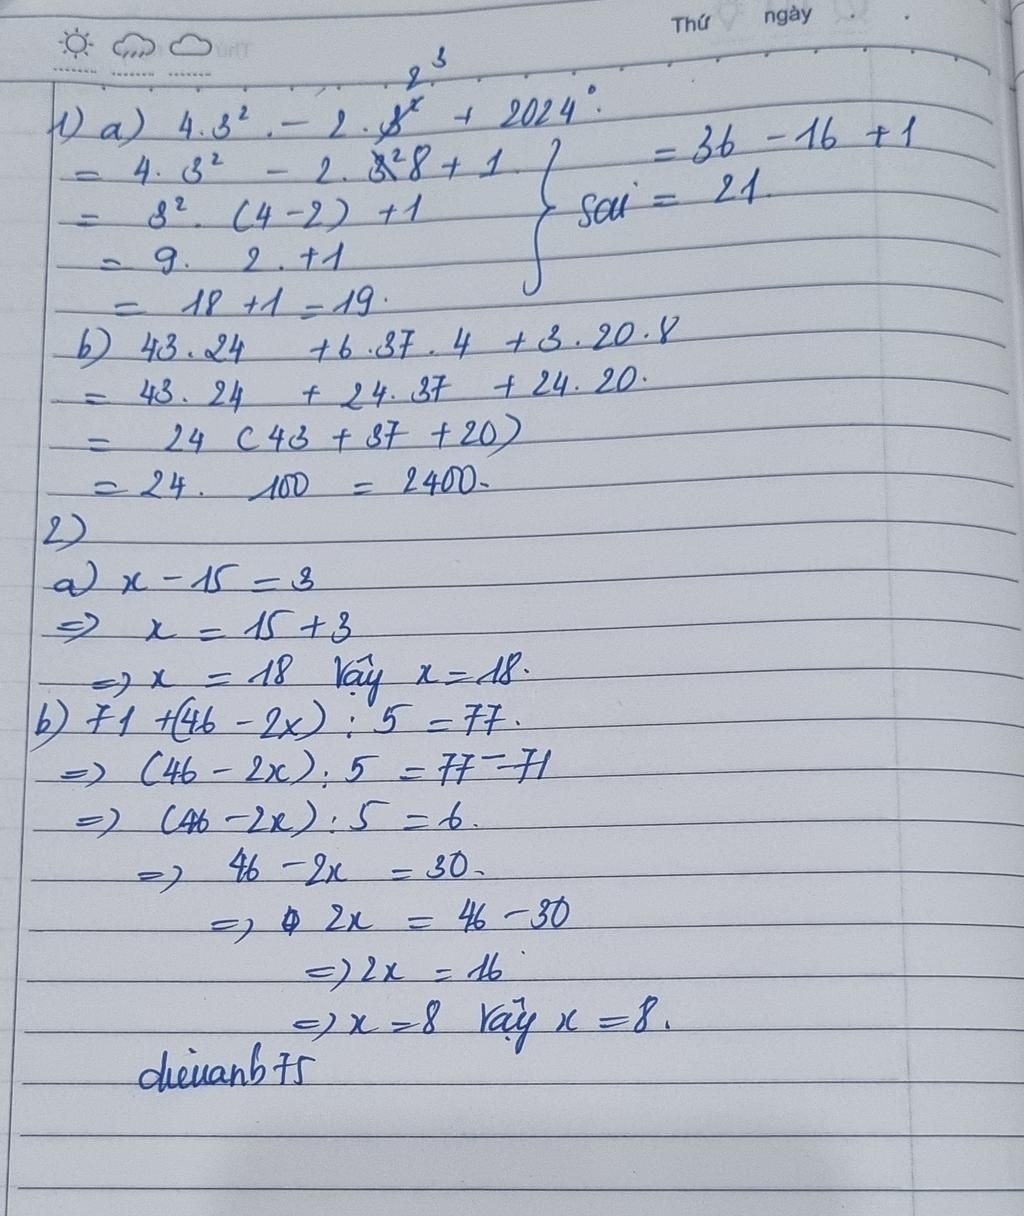 Thứ ngày
2³
1) a) 4.3² - 2. 3² + 2024⁰.
= 4. 3² - 2. 3² 8 + 1 = 36 - 16 + 1
= 3². (4-2) +1 sai = 21.
= 9. 2. +1
= 18 +1 = 19.
b) 43.24 + 6.37.4 + 3.20.8
= 43. 24 + 24. 37 + 24. 20.
= 24 (43 + 37 + 20)
= 24. 100 = 2400.
2)
a) x - 15 = 3
=> x = 15 + 3
=> x = 18 Vậy x = 18.
b) 71 + (46 - 2x) : 5 = 77.
=> (46 - 2x) : 5 = 77 - 71
=> (46 - 2x) : 5 = 6.
=> 46 - 2x = 30.
=> 2x = 46 - 30
=> 2x = 16
=> x = 8 Vậy x = 8.
dieuanb75